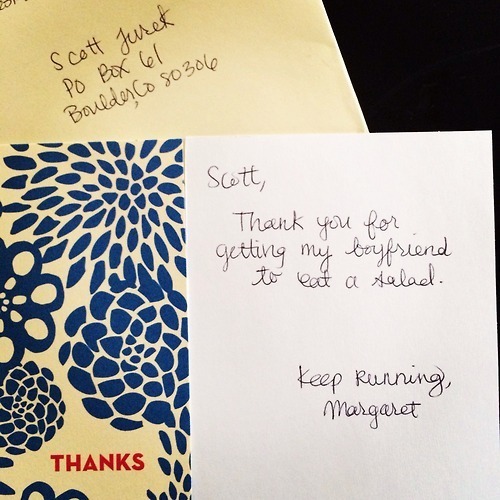 Scott Jurek
PO Box 61
Boulder, Co 80306
Scott,
Thank you for
getting my boyfriend
to eat a salad.
Keep Running,
Margaret
THANKS